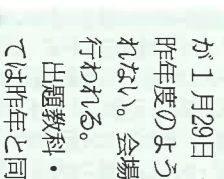 が1月29日
昨年度のよう
れない。会場
行われる。
出題教科・
ては昨年と同